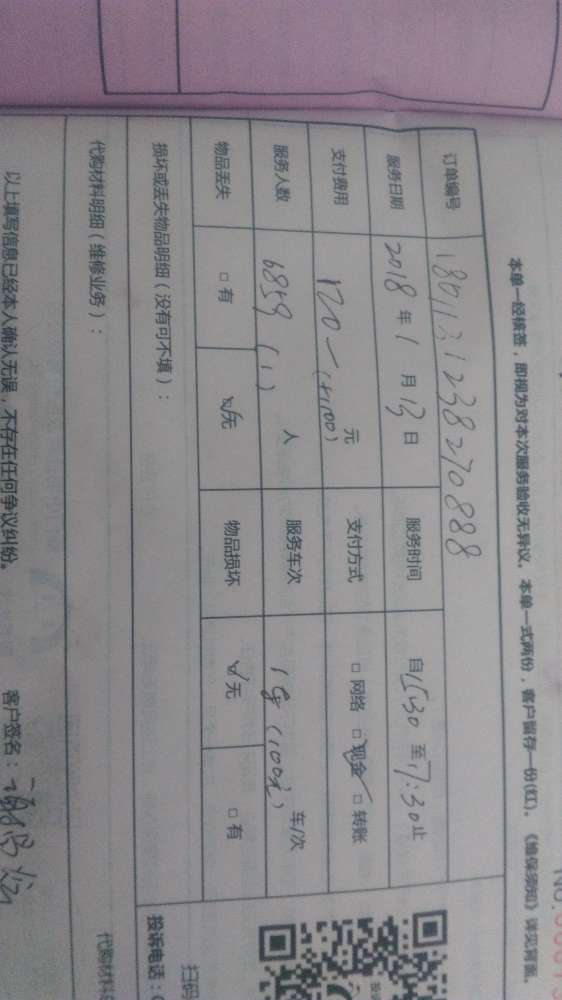 NO.
本单一经核签，即视为对本次服务验收无异议。本单一式两份，客户留存一份(红)。《维保须知》详见背面。
订单编号 1801131238270888
服务日期 2018年1月13日 服务时间 自15:30至17:30止
支付费用 120-(+100)元 支付方式 □网络 □现金✓ □转账
服务人数 6859 (1) 人 服务车次 1车(100元) 车/次
物品丢失 □有 ☑无 物品损坏 ☑无 □有
损坏或丢失物品明细（没有可不填）：
代购材料明细（维修业务）： 代购材料
以上填写信息已经本人确认无误，不存在任何争议纠纷。 客户签名：
扫码
投诉电话：